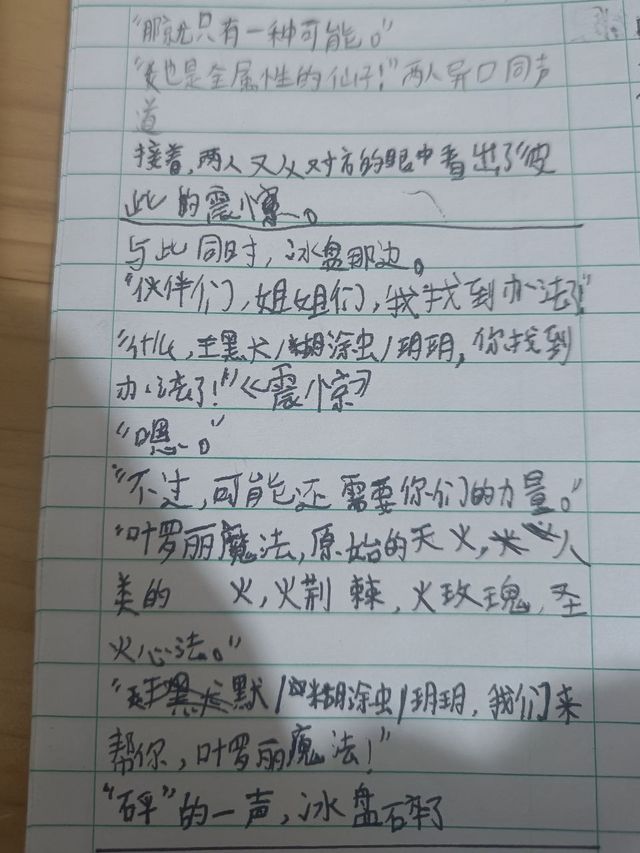 “那就只有一种可能。”
“我也是全属性的仙子!”两人异口同声
道
接着,两人又从对方的眼中看出了彼
此的震惊。
与此同时,冰盘那边。
“伙伴们,姐姐们,我找到办法了!”
“什么,王黑犬/糊涂虫/玥玥,你找到
办法了!”《震惊》
“嗯。”
“不过,可能还需要你们的力量。”
“叶罗丽魔法,原始的天火,人
类的 火,火荆棘,火玫瑰,圣
火心法。”
“王默/糊涂虫/玥玥,我们来
帮你,叶罗丽魔法!”
“砰”的一声,冰盘碎了